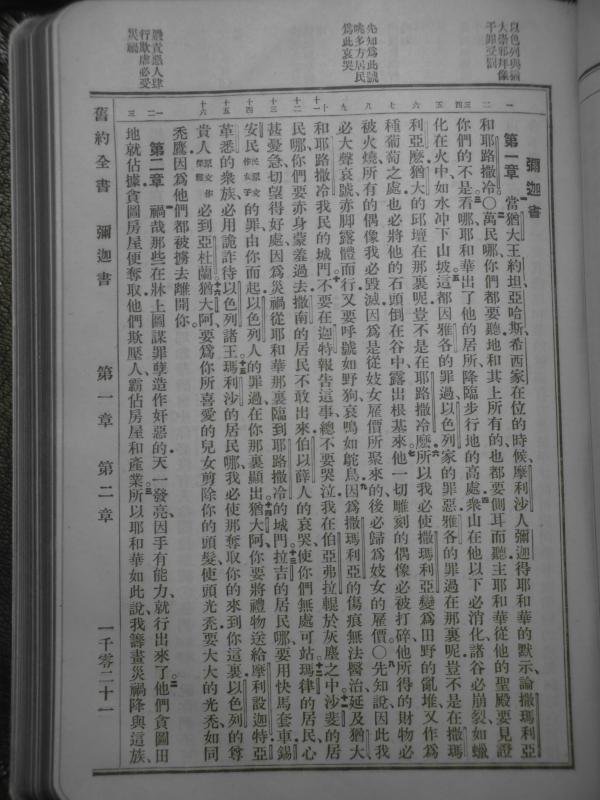 以色列與猶
大崇邪拜像
干罪受罰
先知爲此號
咷多方居民
爲此哀哭
嚴責惡人肆
行欺虐必受
災禍
彌迦書
第一章 當猶大王約坦亞哈斯希西家在位的時候、摩利沙人彌迦得耶和華的默示、論撒瑪利亞
和耶路撒冷○萬民哪、你們都要聽、地和其上所有的、也都要側耳而聽、主耶和華從他的聖殿要見證
你們的不是。看哪、耶和華出了他的居所、降臨步行地的高處。衆山在他以下必消化、諸谷必崩裂、如蠟
化在火中、如水冲下山坡。這都因雅各的罪過、以色列家的罪惡。雅各的罪過在那裏呢、豈不是在撒瑪
利亞麽、猶大的邱壇在那裏呢、豈不是在耶路撒冷麽。所以我必使撒瑪利亞變爲田野的亂堆、又作爲
種葡萄之處、也必將他的石頭倒在谷中、露出根基來。他一切雕刻的偶像必被打碎、他所得的財物必
被火燒、所有的偶像我必毀滅、因爲是從妓女雇價所聚來的、後必歸爲妓女的雇價○先知說、因此我
必大聲哀號、赤脚露體而行、又要呼號如野狗、哀鳴如鴕鳥。因爲撒瑪利亞的傷痕無法醫治、延及猶大
和耶路撒冷我民的城門。不要在迦特報告這事、總不要哭泣、我在伯亞弗拉輥於灰塵之中。沙斐的居
民哪、你們要赤身蒙羞過去、撒南的居民不敢出來、伯以薛人的哀哭、使你們無處可站。瑪律的居民心
甚憂急、切望得好處、因爲災禍從耶和華那裏臨到耶路撒冷的城門。拉吉的居民哪、要用快馬套車、錫
安民民原文作女子的罪由你而起、以色列人的罪過在你那裏顯出。猶大阿、你要將禮物送給摩利設迦特、亞
革悉的衆族必用詭詐待以色列諸王。瑪利沙的居民哪、我必使那奪取你的來到你這裏、以色列的尊
貴人原文作榮耀必到亞杜蘭。猶大阿、要爲你所喜愛的兒女剪除你的頭髮、使頭光禿、要大大的光禿、如同
禿鷹、因爲他們都被擄去離開你。
第二章 禍哉、那些在牀上圖謀罪孽造作奸惡的、天一發亮、因手有能力就行出來了。他們貪圖田
地就佔據、貪圖房屋便奪取、他們欺壓人、霸佔房屋和產業。所以耶和華如此說、我籌畫災禍降與這族、
舊約全書 彌迦書 第一章 第二章 一千零二十一